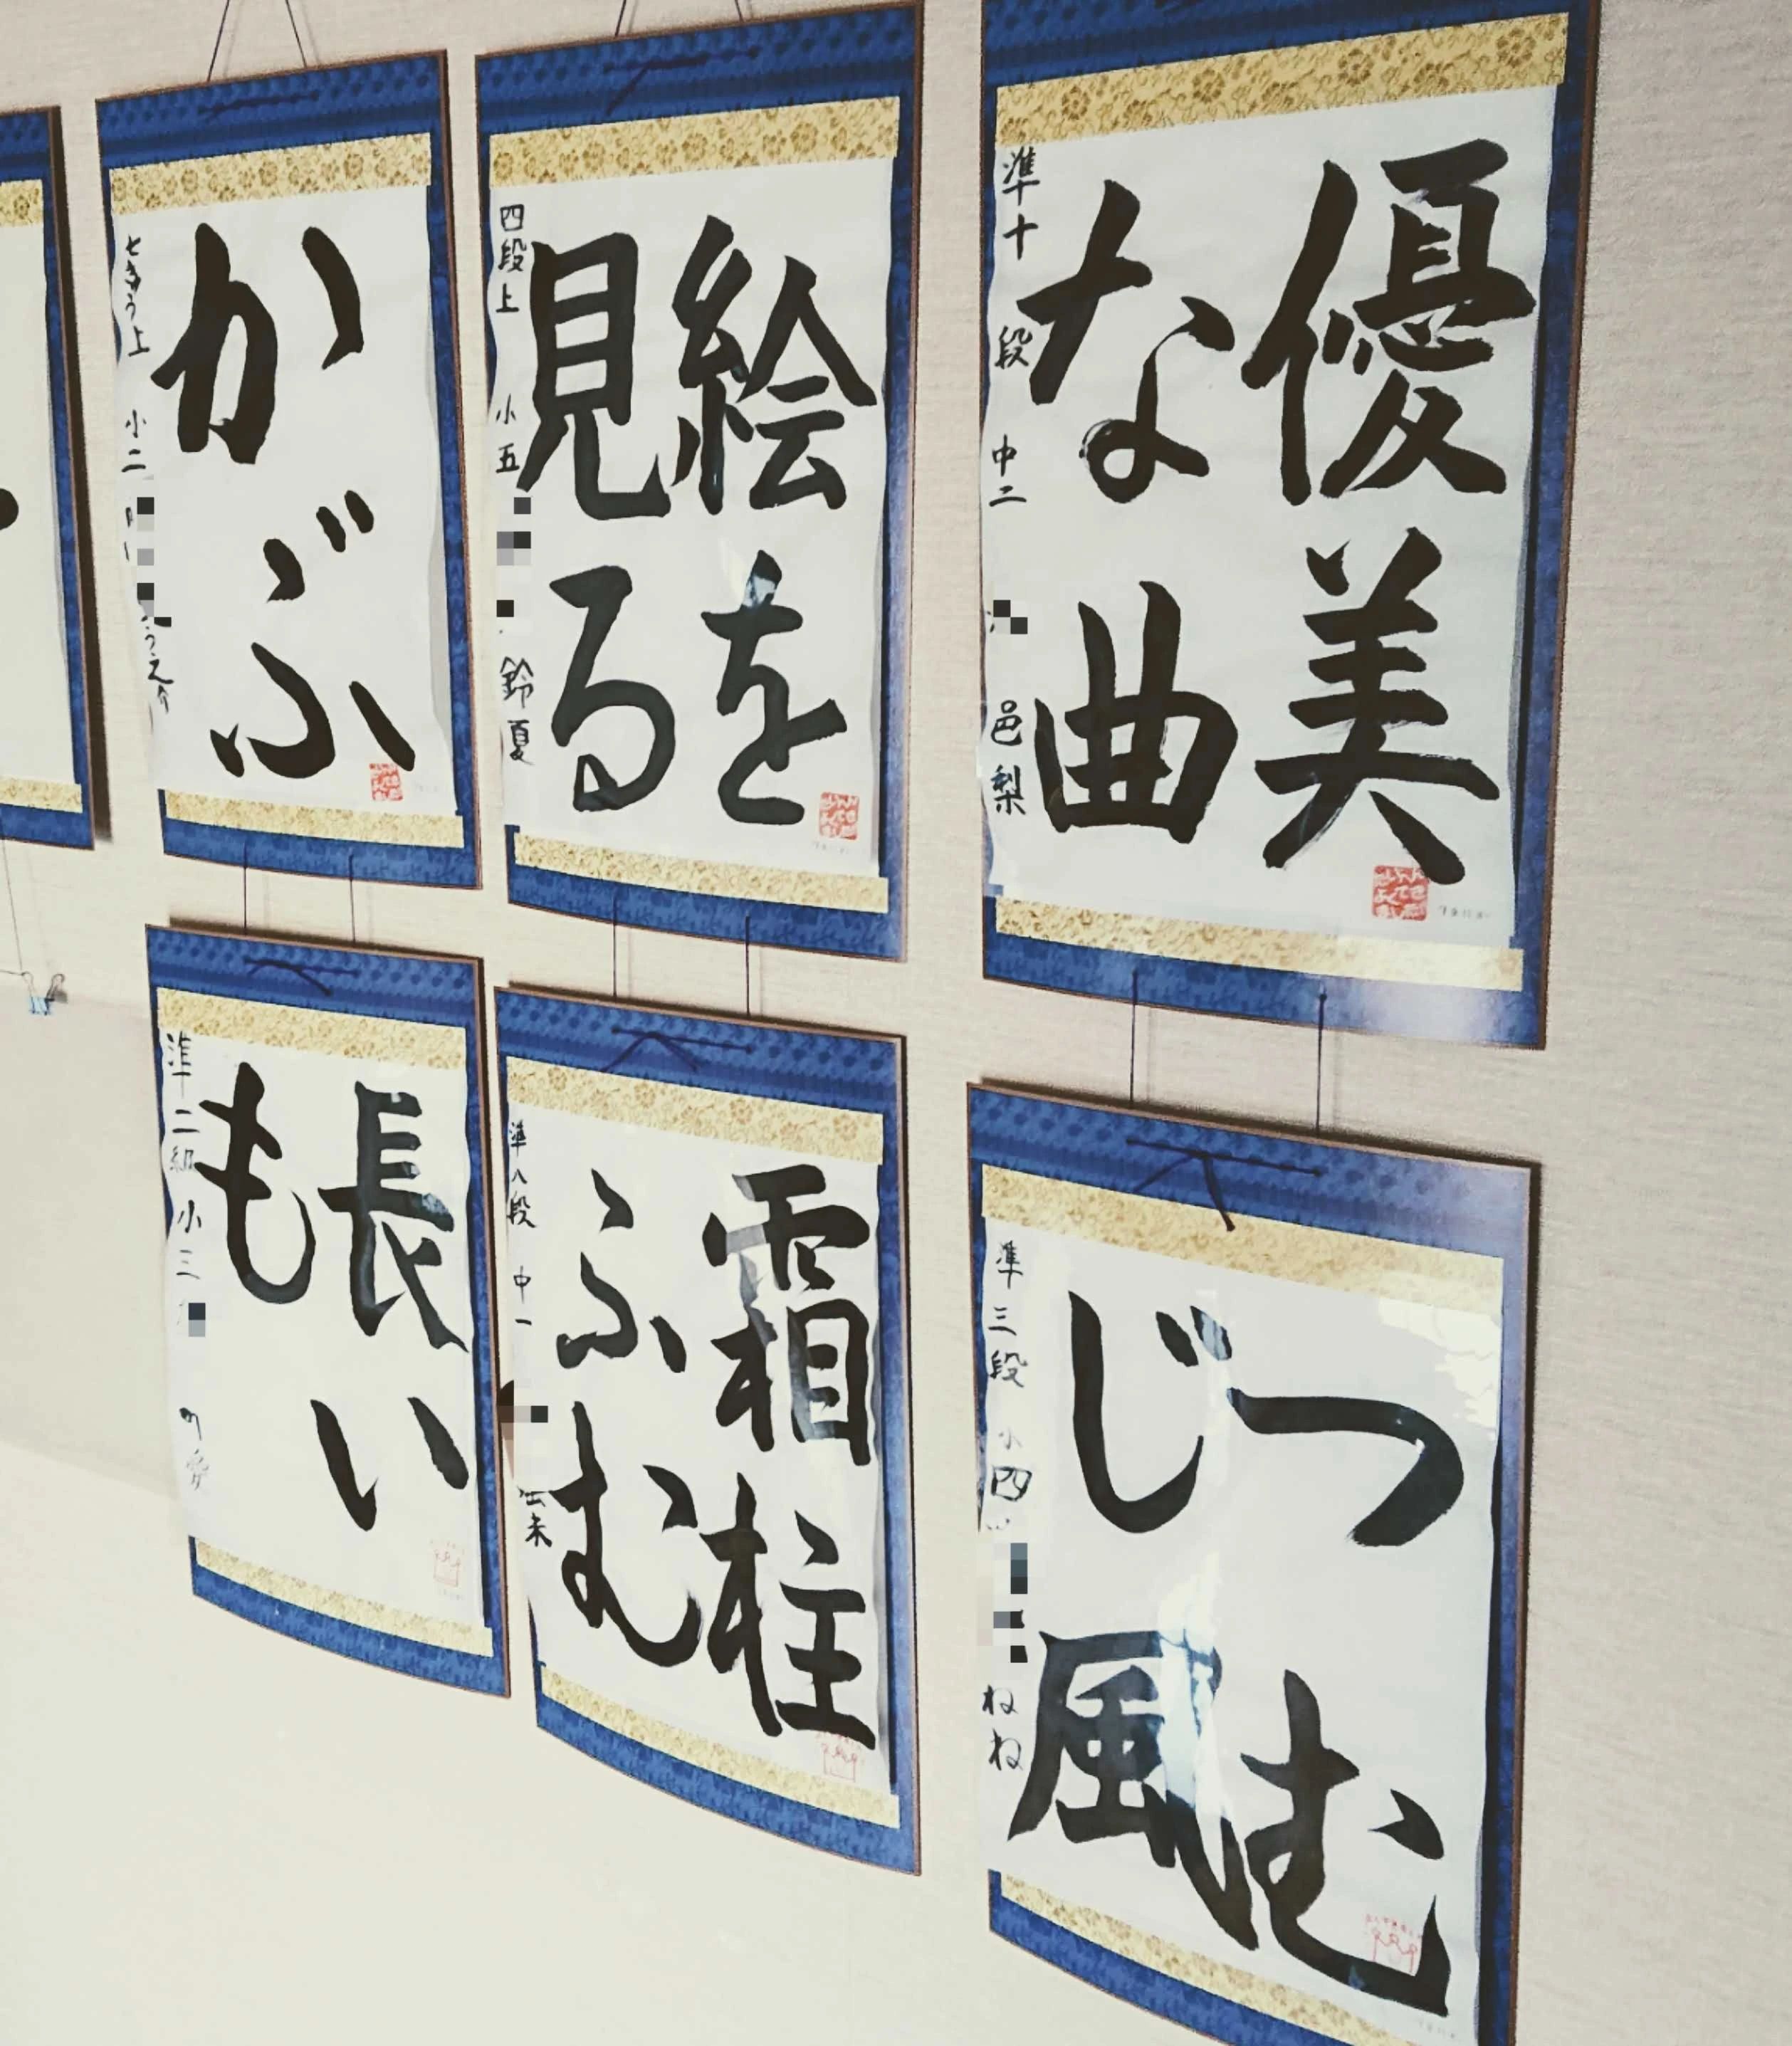 優美
な曲
準十段 中二 邑梨
絵を
見る
四段上 小五 鈴夏
かぶ
七きゅう上 小二
つむ
じ風
準三段 小四 ねね
霜柱
ふむ
準八段 中一 未
長い
も
準二級 小三 愛